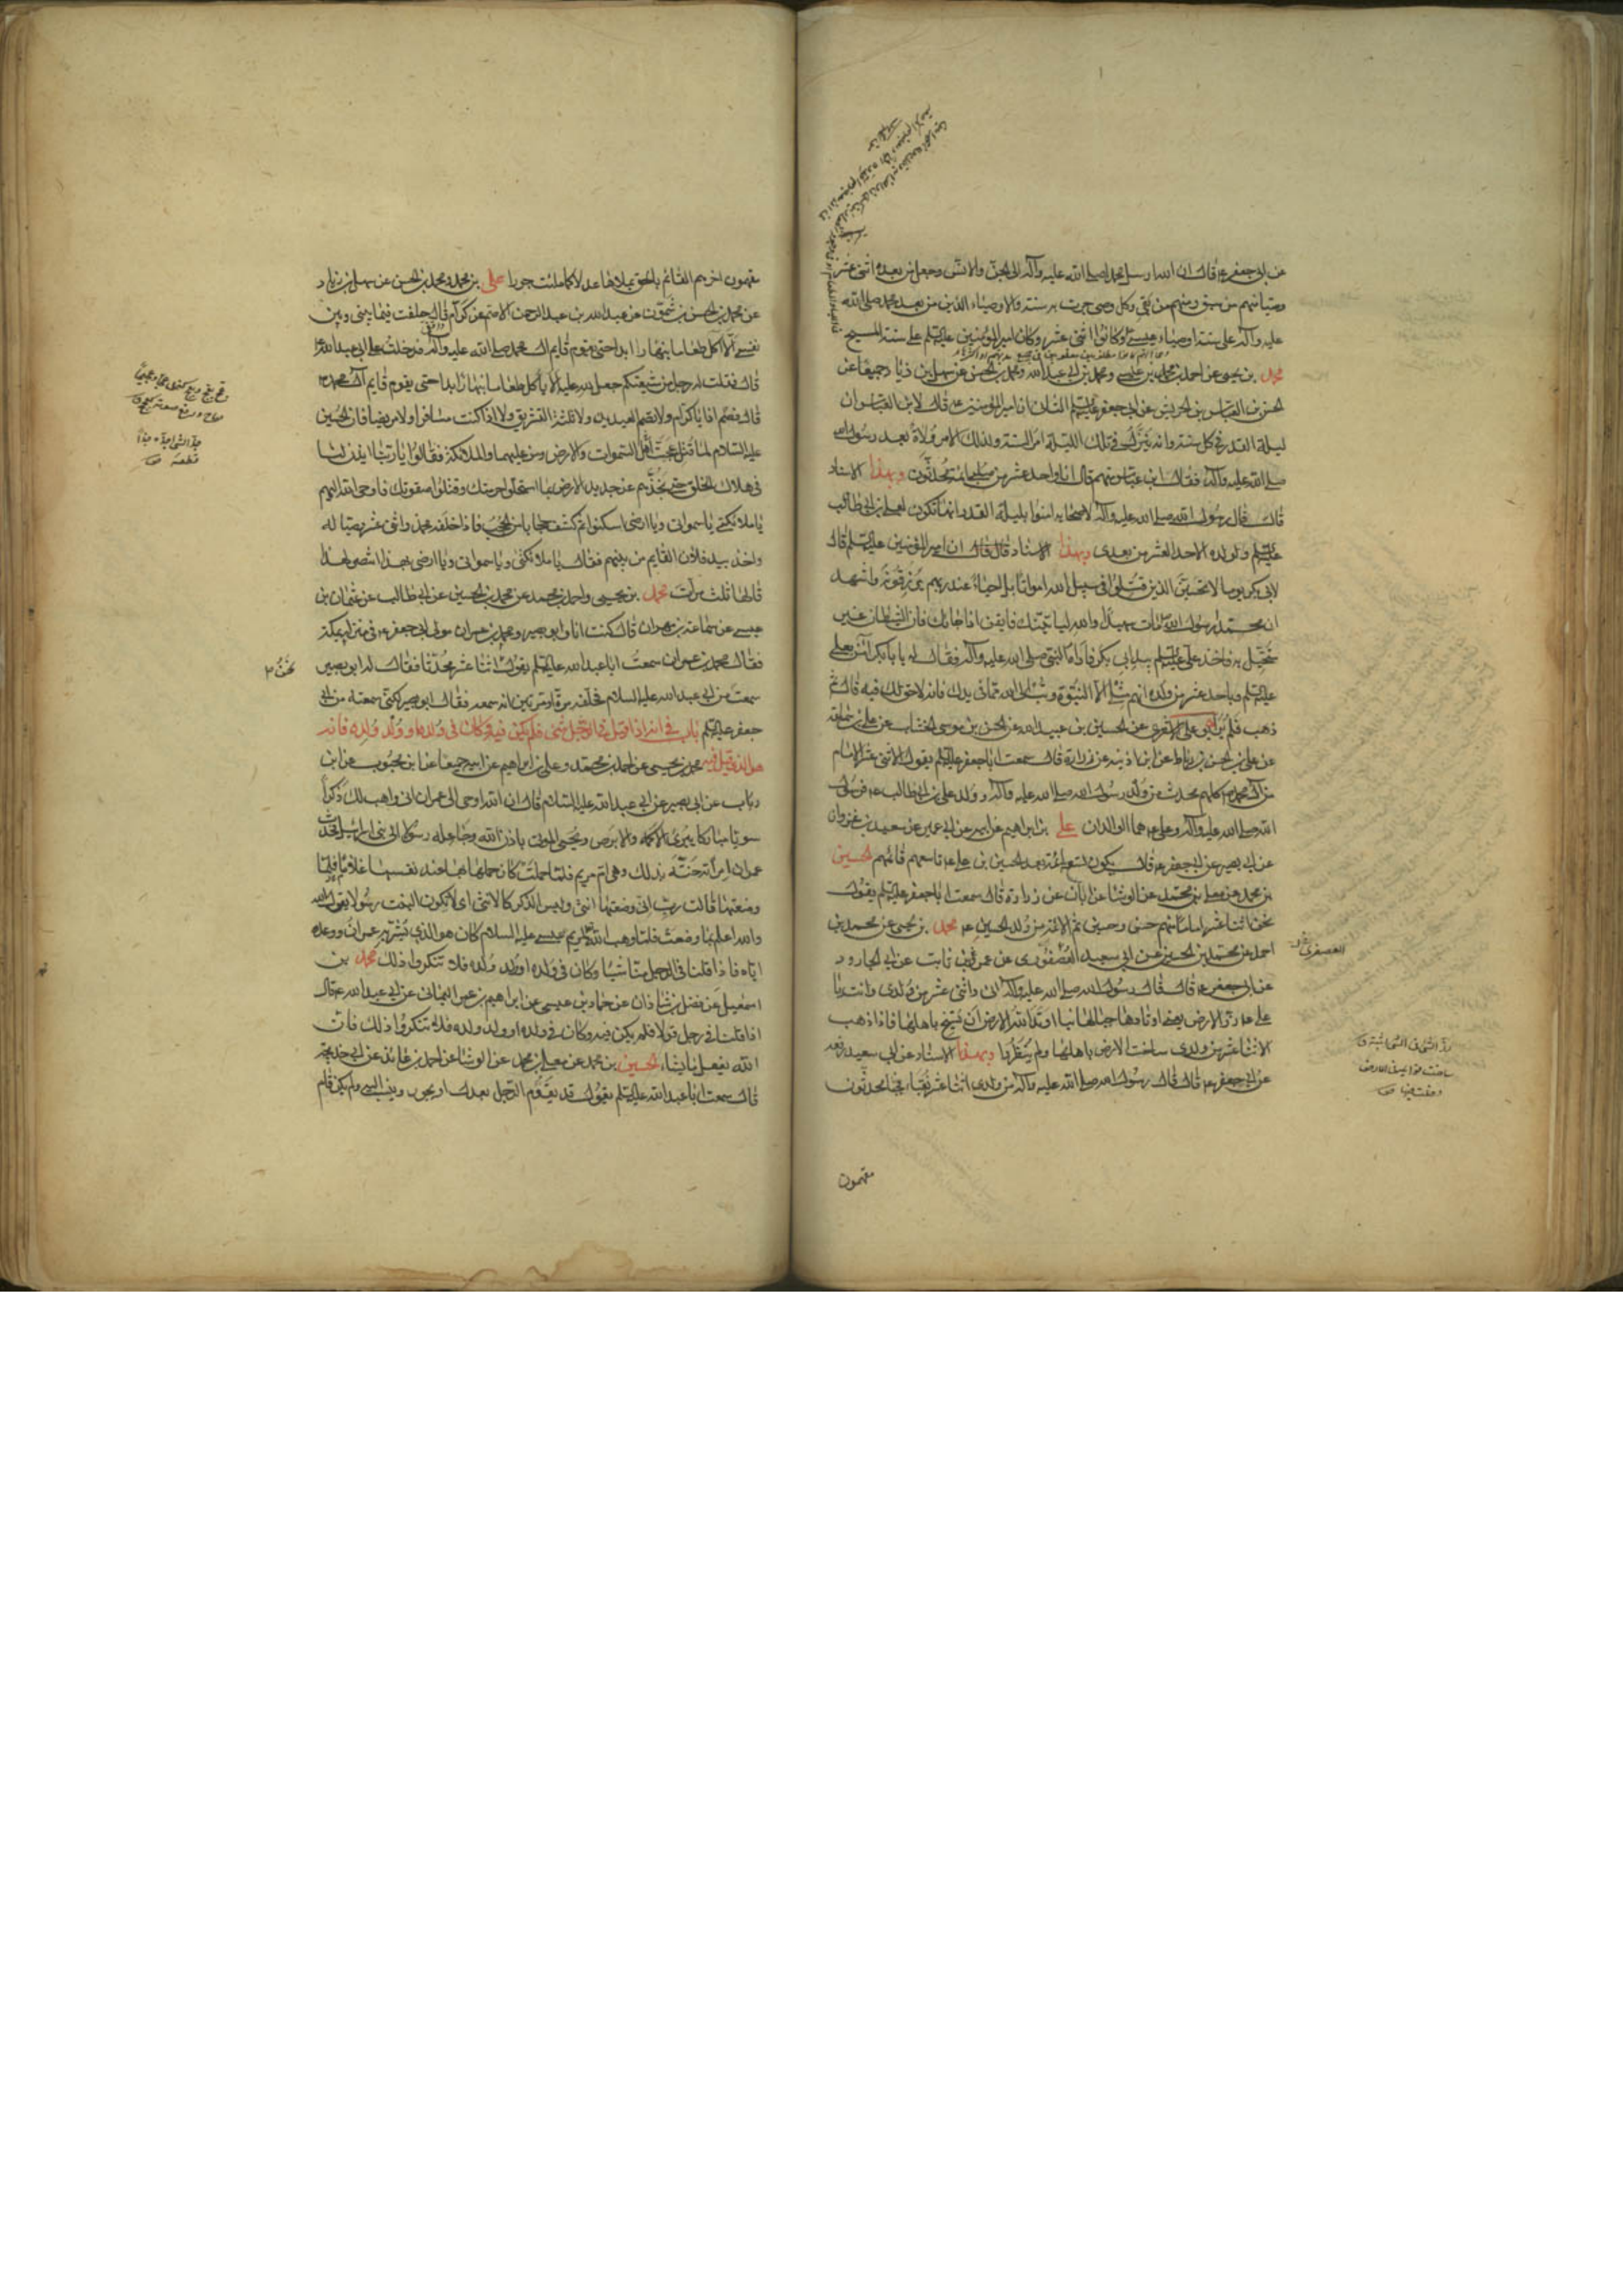 عن ابي جعفر ع قال ان الله ارسل محمدا صلى الله عليه وآله الى الجن والانس وجعل من بعده اثنى عشر
وصيا منهم من سبق ومنهم من بقي وكل وصي جرت به سنة والاوصياء الذين من بعد محمد صلى الله
عليه وآله على سنة اوصياء عيسى وكانوا اثنى عشر وكان امير المؤمنين عليه السلم على سنة المسيح
محمد بن يحيى عن احمد بن محمد بن عيسى ومحمد بن ابي عبد الله ومحمد بن الحسن عن سهل بن زياد جميعا عن
الحسن بن العباس بن الحريش عن ابي جعفر عليه السلم الثاني ان امير المؤمنين ع قال لابن العباس ان
ليلة القدر في كل سنة وانه ينزل في تلك الليلة امر السنة ولذلك الامر ولاة بعد رسول الله
صلى الله عليه وآله فقال ابن عباس من هم قال انا واحد عشر من صلبي ائمة محدثون وبهذا الاسناد
قال قال رسول الله صلى الله عليه وآله لاصحابه امنوا بليلة القدر انها تكون لعلي بن ابي طالب
عليه السلم ولولده الاحد العشر من بعدي وبهذا الاسناد قال قال ان امير المؤمنين عليه السلم قال
لابي بكر يوما لا تحسبن الذين قتلوا في سبيل الله امواتا بل احياء عند ربهم يرزقون واشهد
ان محمدا رسول الله مات شهيدا والله لياتينك فايقن اذا جاءك فان الشيطان غير
متخيل به فاخذ علي عليه السلم بيد ابي بكر فاراه النبي صلى الله عليه وآله فقال له يا با بكر آمن بعلي
عليه السلم وباحد عشر من ولده انهم مثلي الا النبوة وتب الى الله مما في يدك فانه لا حق لك فيه قال ثم
ذهب فلم ير ابو علي الاشعري عن الحسين بن عبيد الله عن الحسن بن موسى الخشاب عن علي بن سماعة
عن علي بن الحسن بن رباط عن ابن اذينه عن زرارة قال سمعت ابا جعفر عليه السلم يقول الاثنى عشر الامام
من آل محمد كلهم محدث من ولد رسول الله صلى الله عليه وآله وولد علي بن ابي طالب ع فرسول
الله صلى الله عليه وآله وعلي ع هما الوالدان علي بن ابراهيم عن ابيه عن ابن ابي عمير عن سعيد بن غزوان
عن ابي بصير عن ابي جعفر ع قال يكون تسعة ائمة بعد الحسين بن علي ع تاسعهم قائمهم الحسين
بن محمد عن معلى بن محمد عن الوشا عن ابان عن زرارة قال سمعت ابا جعفر عليه السلم يقول
نحن اثنا عشر اماما منهم حسن وحسين ثم الائمة من ولد الحسين ع محمد بن يحيى عن محمد بن
احمد عن محمد بن الحسين عن ابي سعيد العصفوري عن عمرو بن ثابت عن ابي الجارود
عن ابي جعفر ع قال قال رسول الله صلى الله عليه وآله اني واثنى عشر من ولدي وانت يا
علي ع زر الارض يعني اوتادها جبالها بنا اوتد الله الارض ان تسيخ باهلها فاذا ذهب
الاثنا عشر من ولدي ساخت الارض باهلها ولم ينظروا وبهذا الاسناد عن ابي سعيد رفعه
عن ابي جعفر ع قال قال رسول الله صلى الله عليه وآله من ولدي اثنا عشر نقباء نجباء محدثون
مفهمون
مفهمون اخرهم القائم بالحق يملاها عدلا كما ملئت جورا علي بن محمد ومحمد بن الحسن عن سهل بن زياد
عن محمد بن الحسن بن شمون عن عبد الله بن عبد الرحمن الاصم عن كرام قال حلفت فيما بيني وبين
نفسي الا آكل طعاما بنهار ابدا حتى يقوم قايم آل محمد صلى الله عليه وآله فدخلت على ابي عبد الله ع
قال فقلت له رجل من شيعتكم جعل لله عليه الا ياكل طعاما بنهار ابدا حتى يقوم قايم آل محمد
قال فصم اذا يا كرام ولا تصم العيدين ولا ثلثة التشريق ولا اذا كنت مسافرا ولا مريضا فان الحسين
عليه السلام لما قتل عجت السموات والارض ومن عليهما والملائكة فقالوا يا ربنا ايذن لنا
في هلاك الخلق حتى نجذهم عن جديد الارض بما استحلوا حرمتك وقتلوا صفوتك فاوحى الله اليهم
يا ملائكتي يا سمواتي ويا ارضى اسكنوا ثم كشف حجابا من الحجب فاذا خلفه محمد واثنى عشر وصيا له
واخذ بيد فلان القايم من بينهم فقال يا ملائكتي ويا سمواتي ويا ارضى بهذا انتصر لهذا
قالها ثلث مرات محمد بن يحيى واحمد بن محمد عن محمد بن الحسين عن ابي طالب عن عثمان بن
عيسى عن سماعة بن مهران قال كنت انا وابو بصير ومحمد بن عمران مولى ابي جعفر ع في منزله بمكة
فقال محمد بن عمران سمعت ابا عبد الله عليه السلم يقول اثنا عشر محدثا فقال له ابو بصير
نحن
سمعت من ابي عبد الله عليه السلام فحلفه مرة او مرتين انه سمعه فقال ابو بصير لكني سمعته من ابي
جعفر عليه السلم باب في انه اذا قيل في الرجل شئ فلم يكن فيه وكان في ولده او ولد ولده فانه
هو الذي قيل فيه محمد بن يحيى عن احمد بن محمد وعلي بن ابراهيم عن ابيه جميعا عن ابن محبوب عن ابن
رياب عن ابي بصير عن ابي عبد الله عليه السلام قال ان الله اوحى الى عمران اني واهب لك ذكرا
سويا مباركا يبرئ الاكمه والابرص ويحيي الموتى باذن الله وجاعله رسولا الى بني اسرائيل فحدث
عمران امراته حنة بذلك وهي ام مريم فلما حملت كان حملها بها عند نفسها غلاما فلما
وضعتها قالت رب اني وضعتها انثى وليس الذكر كالانثى اي لا تكون البنت رسولا يقول الله
والله اعلم بما وضعت فلما وهب الله لمريم عيسى عليه السلام كان هو الذي بشر به عمران ووعده
اياه فاذا قلنا في الرجل منا شيئا وكان في ولده او ولد ولده فلا تنكروا ذلك محمد بن
اسمعيل عن فضل بن شاذان عن حماد بن عيسى عن ابراهيم بن عمر اليماني عن ابي عبد الله ع قال
اذا قلنا في رجل قولا فلم يكن فيه وكان في ولده او ولد ولده فلا تنكروا ذلك فان
الله يفعل ما يشاء الحسين بن محمد عن معلى بن محمد عن الوشا عن احمد بن عائذ عن ابي خديجة
قال سمعت ابا عبد الله عليه السلم يقول قد يقوم الرجل بعدل او يجور وينسب اليه ولم يكن قام